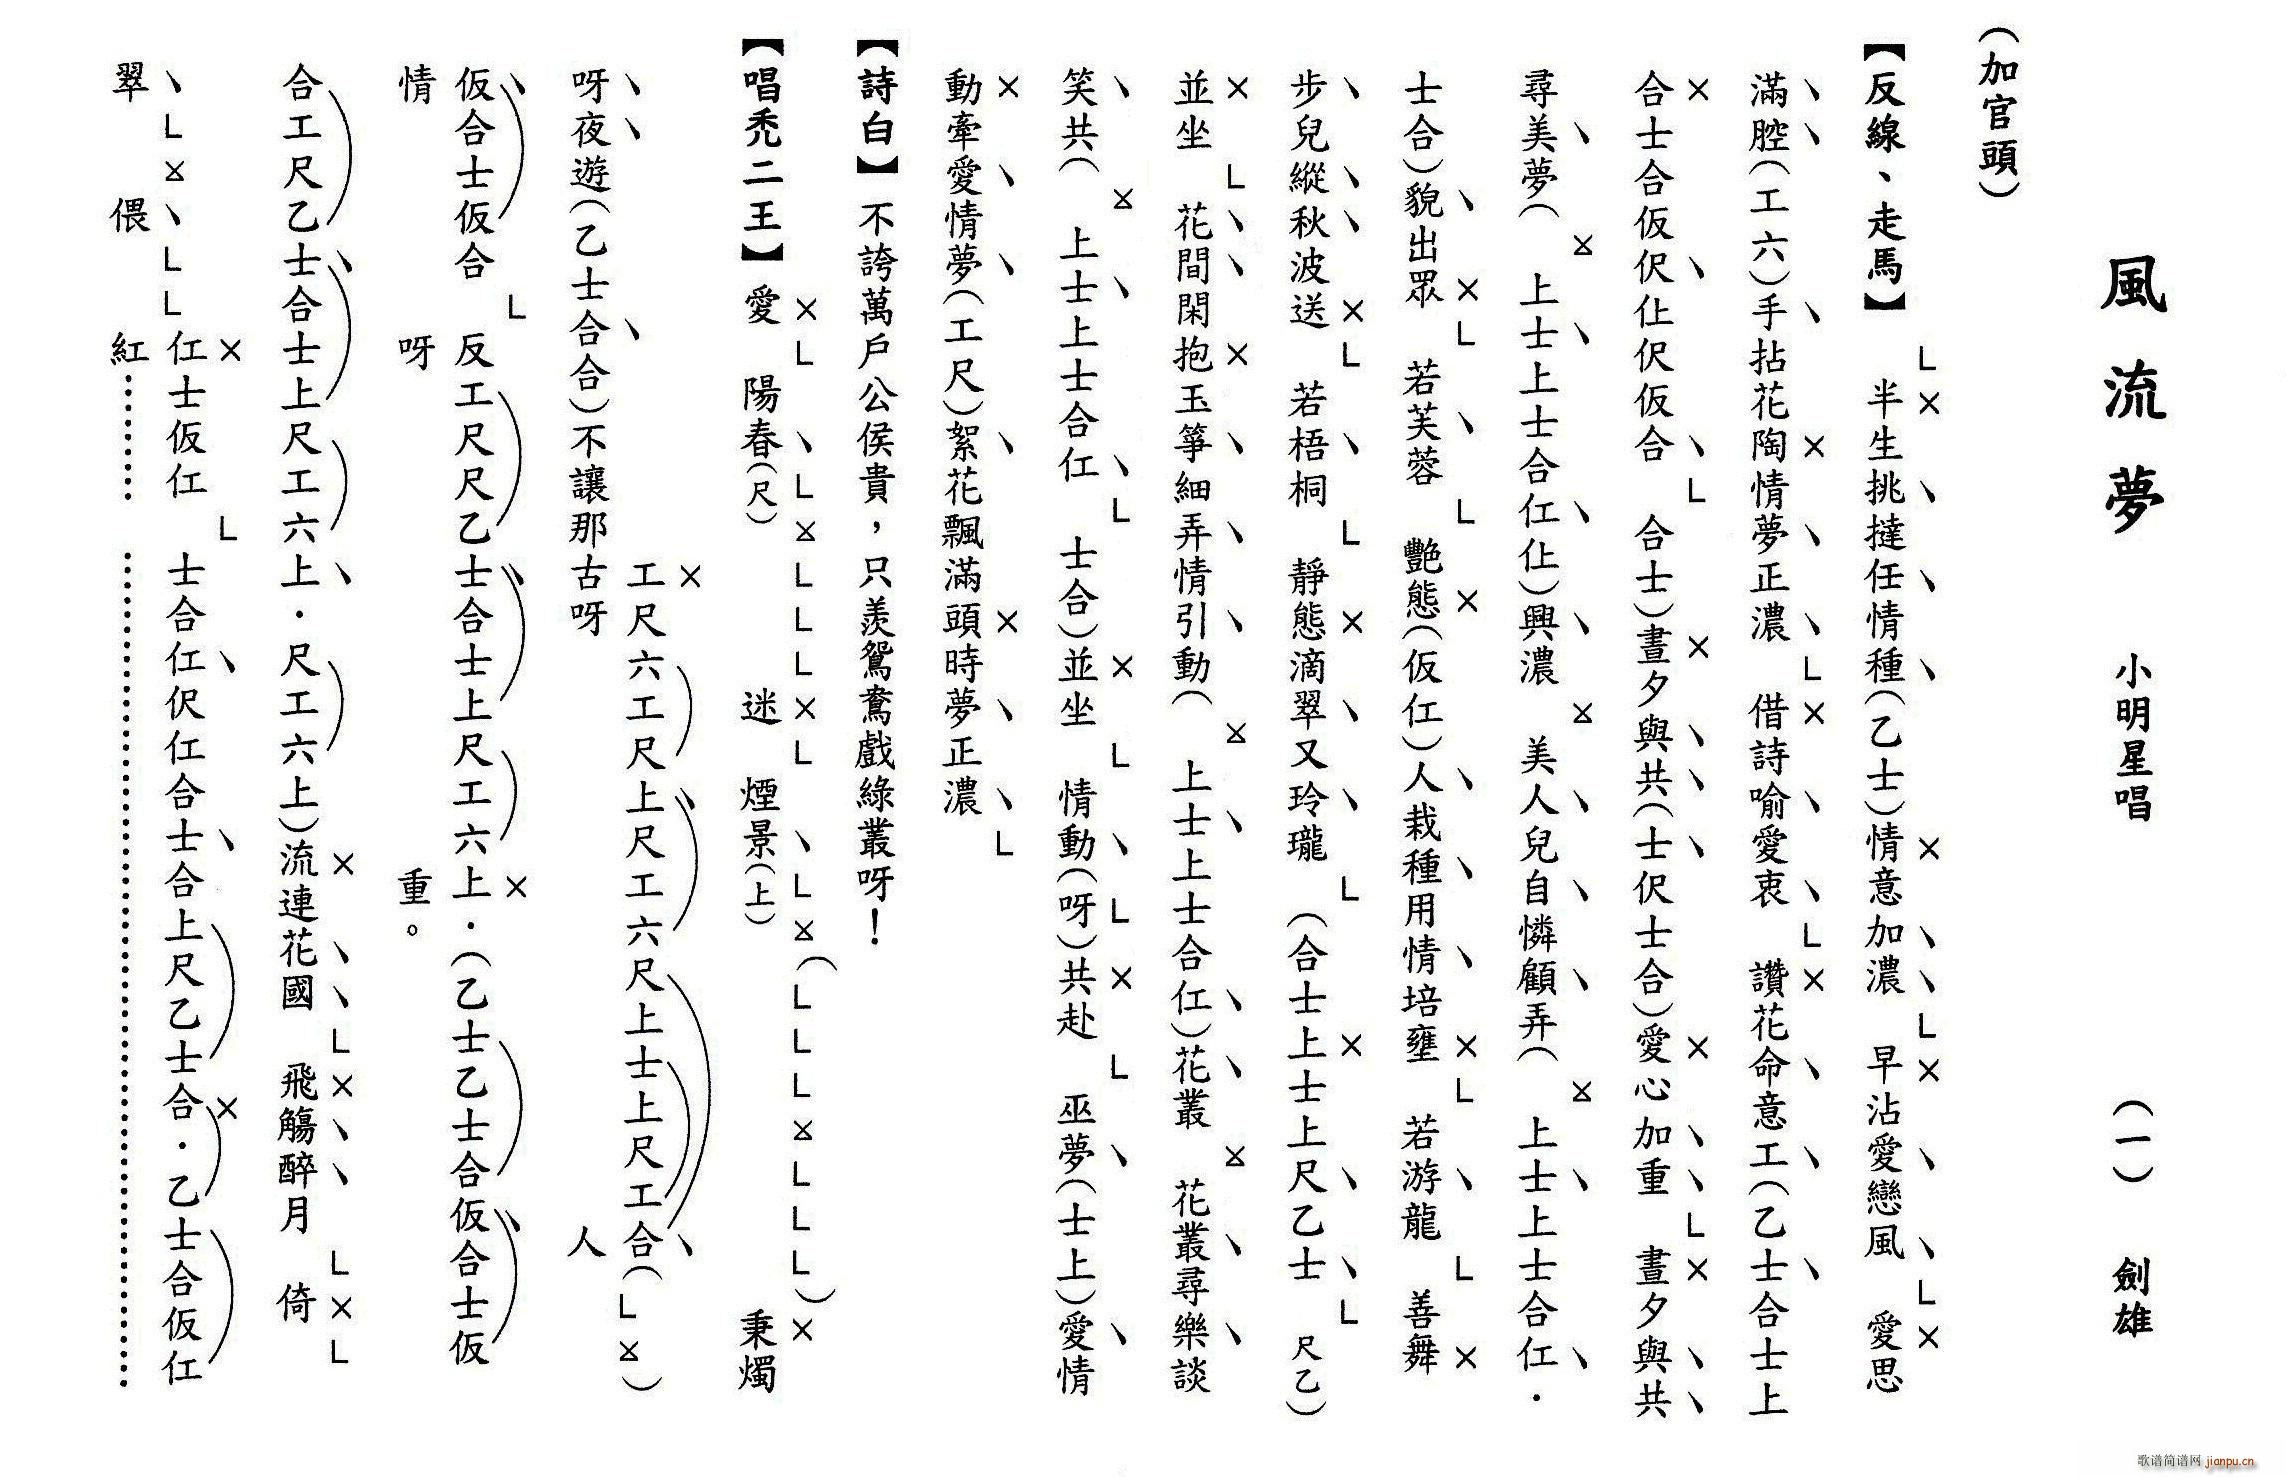 風流夢　小明星唱　（一）　劍雄
（加官頭）
【反線、走馬】L×半生挑撻任情種（乙士）情意加濃L×早沾愛戀風L×愛思
滿腔（工六）手拈花陶情夢正濃L×借詩喻愛衷L×讚花命意工（乙士合士上
合士合仮伬仩伬仮合L合士）晝夕與共（士伬士合）愛心加重L×晝夕與共
尋美夢（上士上士合仜仩）興濃　美人兒自憐顧弄（上士上士合仜．
士合）貌出眾L若芙蓉L艷態（仮仜）人栽種用情培壅L若游龍L善舞
步兒縱秋波送L若梧桐L靜態滴翠又玲瓏L（合士上士上尺乙士L尺乙）
並坐L花間閑抱玉箏細弄情引動（上士上士合仜）花叢　花叢尋樂談
笑共（上士上士合仜L士合）並坐L情動（呀）L共赴L巫夢（士上）愛情
動牽愛情夢（工尺）絮花飄滿頭時夢正濃L
【詩白】不誇萬戶公侯貴，只羨鴛鴦戲綠叢呀！
【唱禿二王】愛×L陽春（尺）L LLL迷×L煙景（上）L（LLL LLL）秉燭
呀夜遊（乙士合合）不讓那古呀　人
工尺六工尺上尺工六尺上士上尺工合（L）
仮合士仮合L反工尺尺乙士合士上尺工六上．（乙士乙士合仮合士仮
情　呀　重。
合工尺乙士合士上尺工六上．尺工六上）流連花國L×飛觴醉月L×L倚
L LL仜士仮仜L士合仜伬仜合士合上尺乙士合．乙士合仮仜
翠　偎　紅……
歌谱简谱网 jianpu.cn